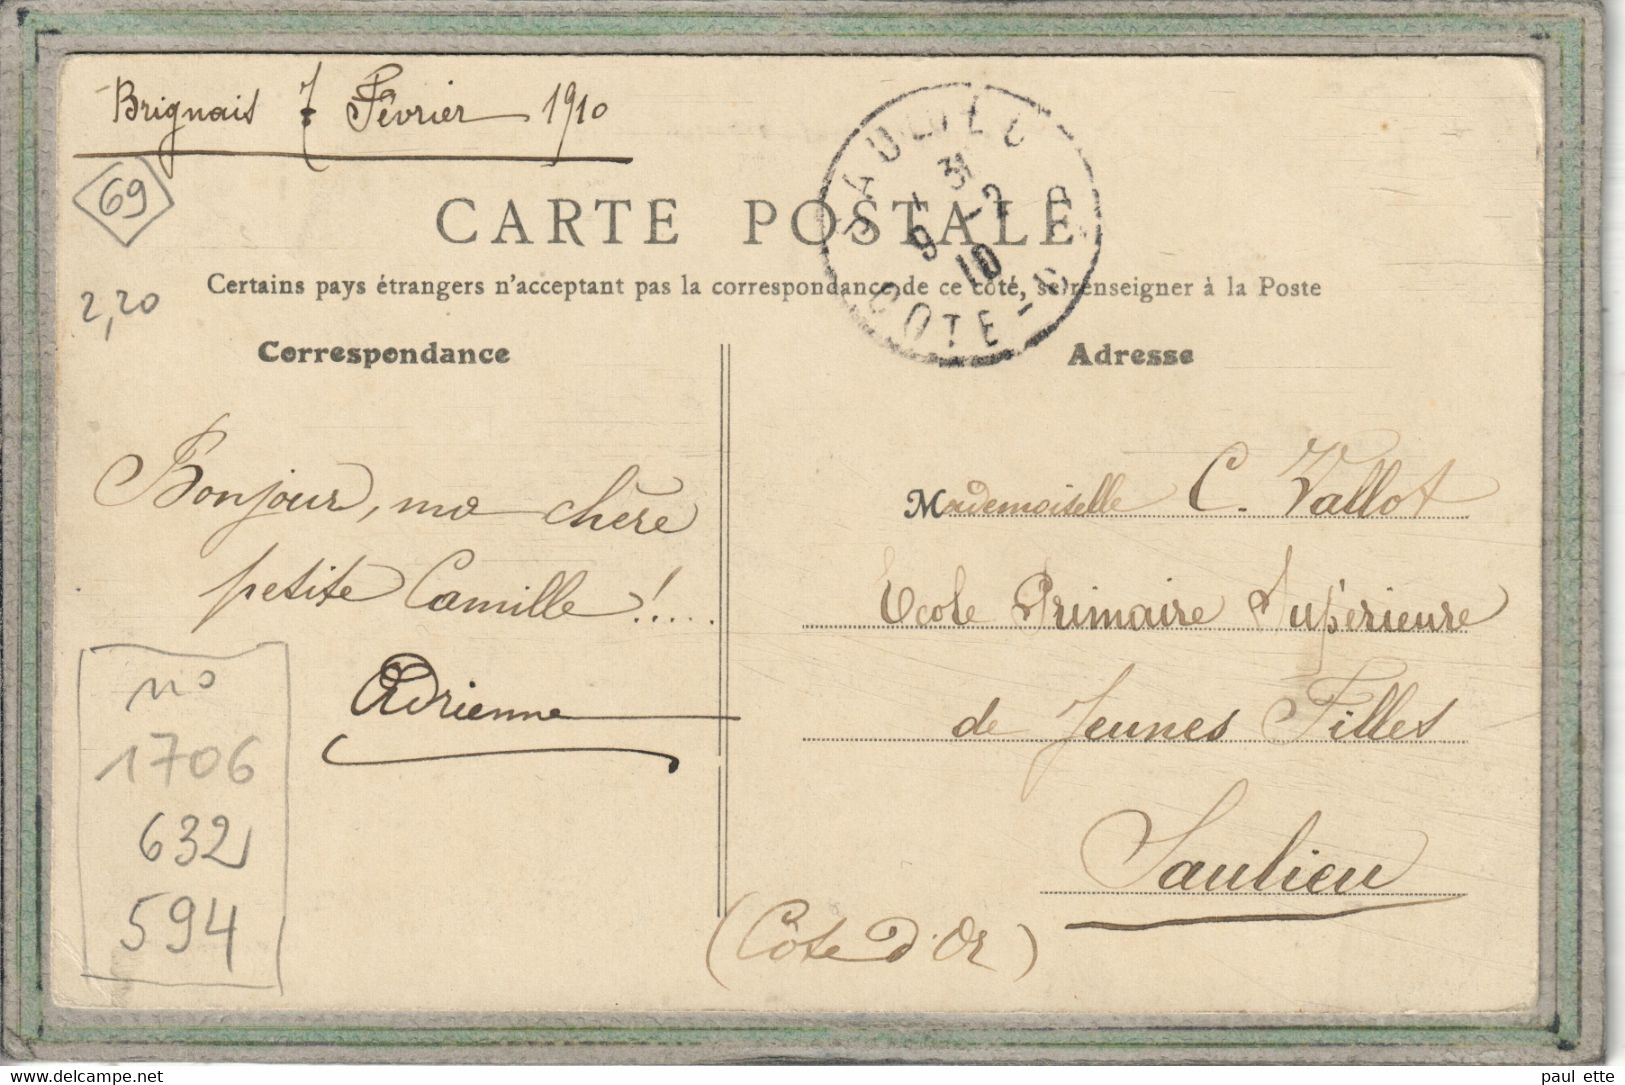 Brignais 7 Février 1910
69
CARTE POSTALE
SAULIEU
31
9 -2
10
COTE-D
Certains pays étrangers n'acceptant pas la correspondance de ce côté, se renseigner à la Poste
2,20
Correspondance
Adresse
Bonjour, ma chère
petite Camille !.....
Adrienne
Mademoiselle C. Vallot
Ecole Primaire Supérieure
de Jeunes Filles
Saulieu
(Côte d'Or)
no
1706
632
594
www.delcampe.net
paul ette